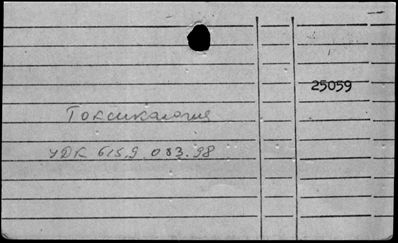 25059
Токсикология
УДК 615,9 083.98